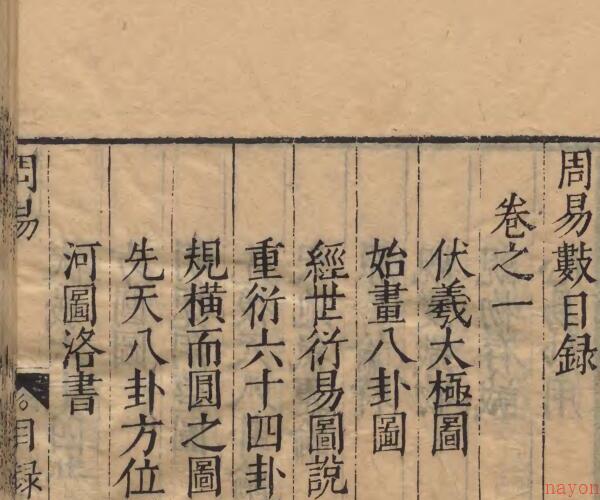 周易數目録
卷之一
伏羲太極圖
始畫八卦圖
經世衍易圖說
重衍六十四卦
規橫而圓之圖
先天八卦方位
河圖洛書
周易
目録
nayon